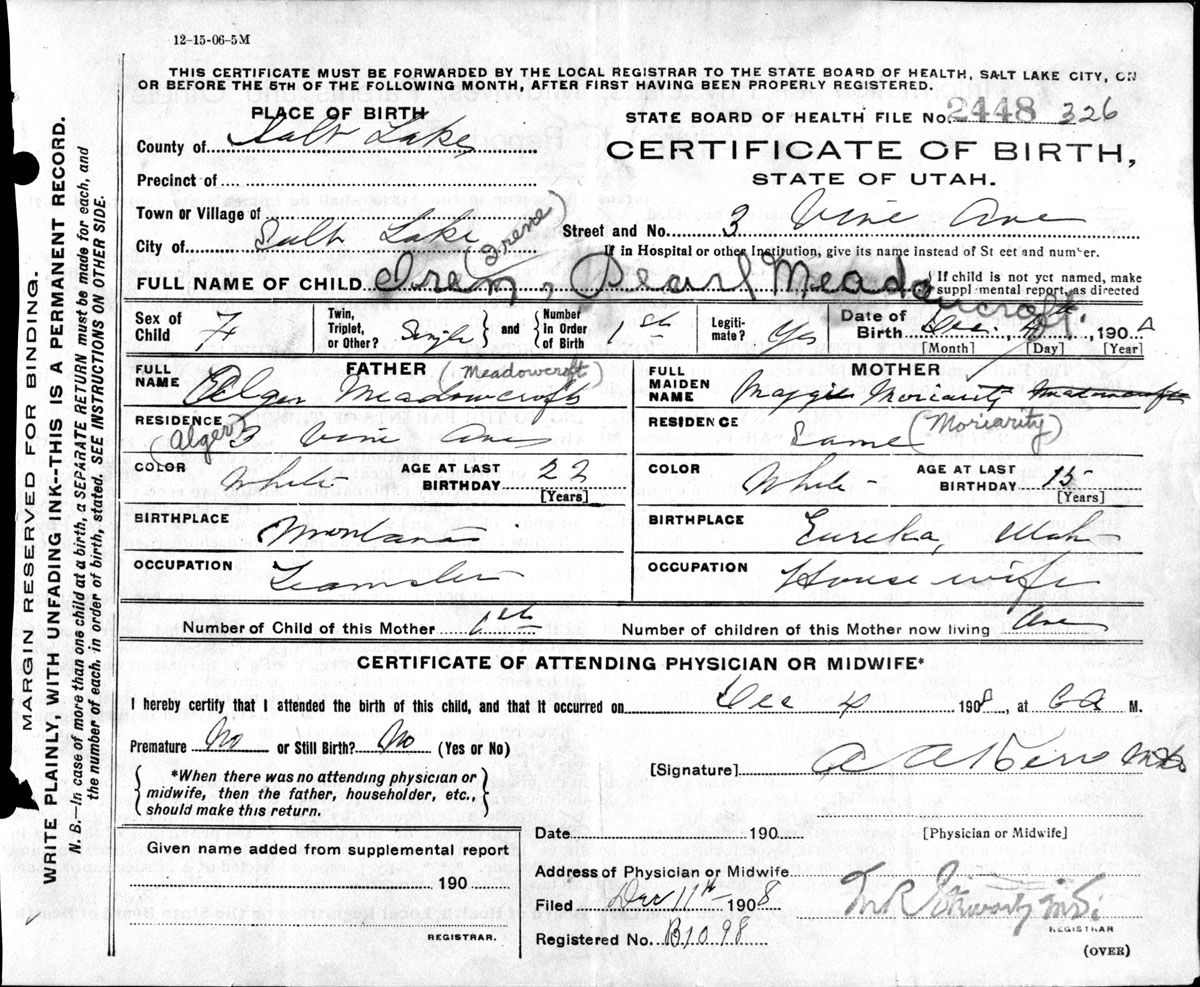 12-15-06-5M
THIS CERTIFICATE MUST BE FORWARDED BY THE LOCAL REGISTRAR TO THE STATE BOARD OF HEALTH, SALT LAKE CITY, ON
OR BEFORE THE 5TH OF THE FOLLOWING MONTH, AFTER FIRST HAVING BEEN PROPERLY REGISTERED.
PLACE OF BIRTH
STATE BOARD OF HEALTH FILE No. 2448 326
County of Salt Lake
CERTIFICATE OF BIRTH,
Precinct of
STATE OF UTAH.
Town or Village of
Street and No. 3 Vine Ave
City of Salt Lake
If in Hospital or other Institution, give its name instead of St eet and number.
(Irene)
FULL NAME OF CHILD Irem, Pearl Meadowcroft.
If child is not yet named, make
suppl mental report, as directed
Sex of Child F
Twin, Triplet, or Other? Single and Number in Order of Birth 1st
Legitimate? Yes
Date of Birth Dec. 4th, 1908
[Month] [Day] [Year]
FATHER
FULL NAME Elger Meadowcroft (Meadowcroft)
RESIDENCE 3 Vine Ave
(Alger)
COLOR White
AGE AT LAST BIRTHDAY 22
[Years]
BIRTHPLACE Montana
OCCUPATION Teamster
MOTHER
FULL MAIDEN NAME Maggie Moriarity Meadowcroft
RESIDENCE Same (Moriarity)
COLOR White
AGE AT LAST BIRTHDAY 15
[Years]
BIRTHPLACE Eureka, Utah
OCCUPATION House wife
Number of Child of this Mother 1st
Number of children of this Mother now living One
CERTIFICATE OF ATTENDING PHYSICIAN OR MIDWIFE*
I hereby certify that I attended the birth of this child, and that it occurred on Dec 4 1908, at 6 A M.
Premature No or Still Birth? No (Yes or No)
*When there was no attending physician or
midwife, then the father, householder, etc.,
should make this return.
[Signature] A A Kerr MD
Date 190
[Physician or Midwife]
Given name added from supplemental report
190
REGISTRAR.
Address of Physician or Midwife
Filed Dec 11th 1908
Registered No. B1098
REGISTRAR
(OVER)
MARGIN RESERVED FOR BINDING.
WRITE PLAINLY, WITH UNFADING INK--THIS IS A PERMANENT RECORD.
N. B.—In case of more than one child at a birth, a SEPARATE RETURN must be made for each, and
the number of each, in order of birth, stated. SEE INSTRUCTIONS ON OTHER SIDE.